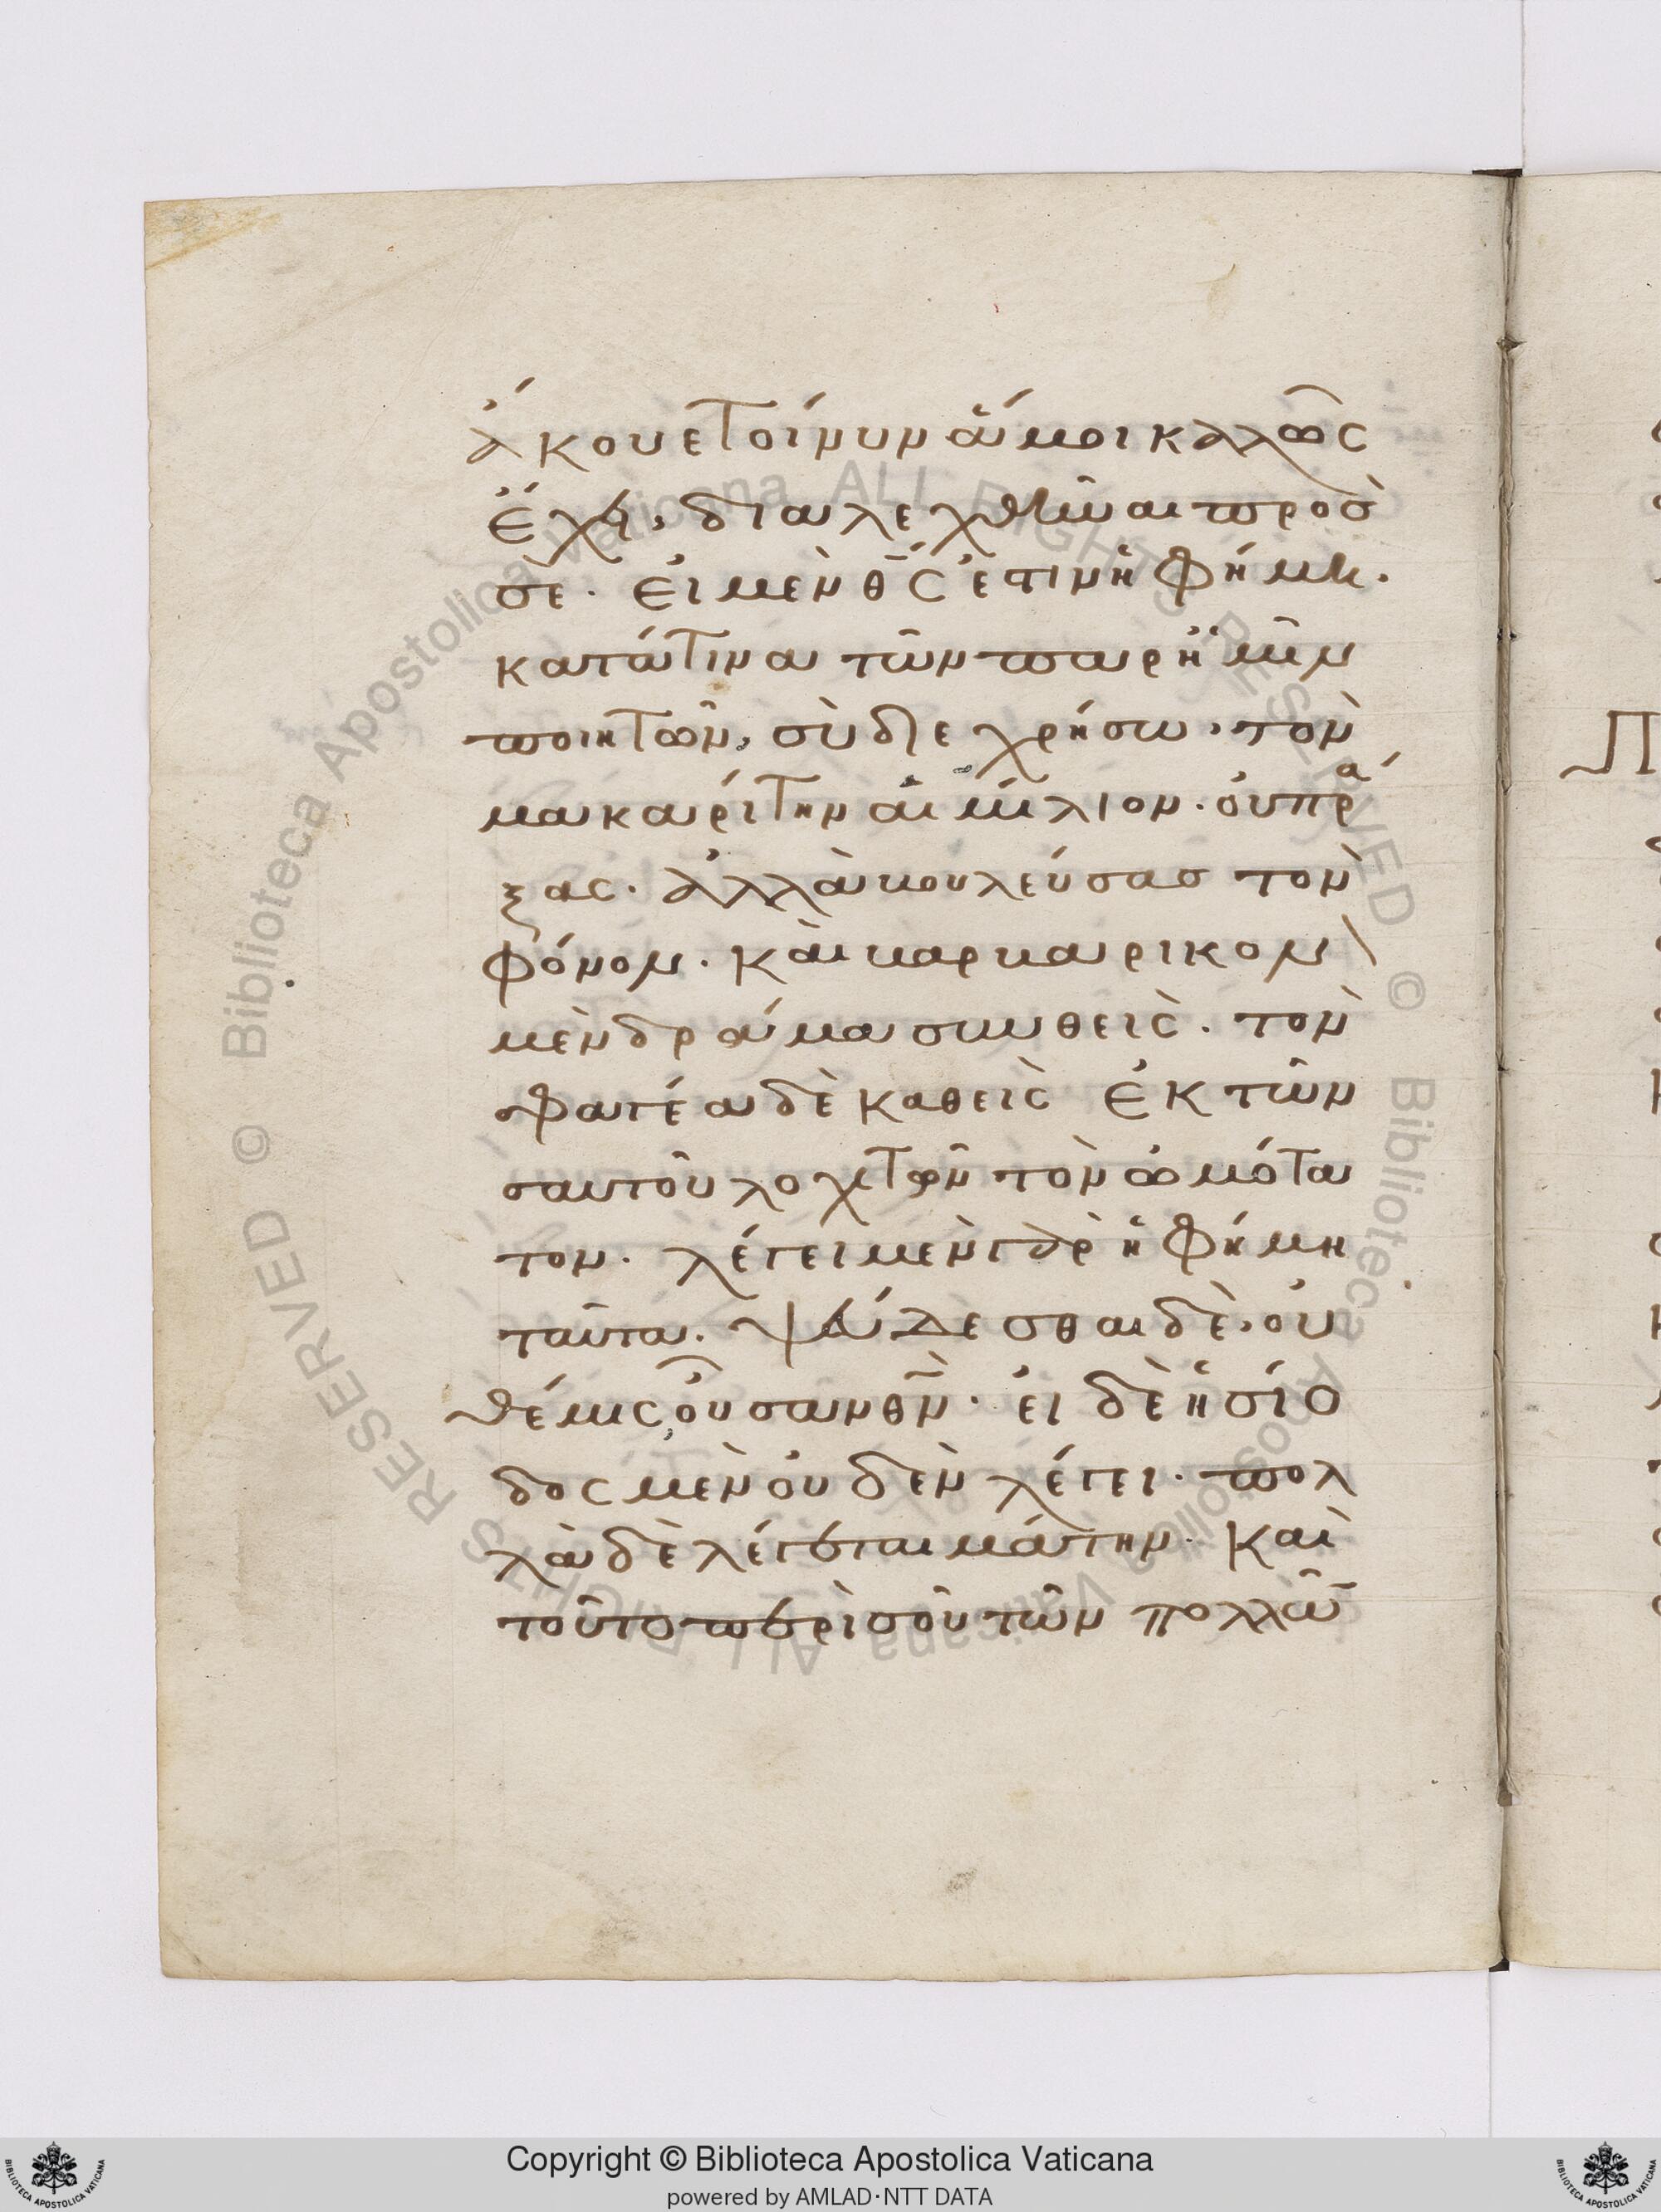 ἄκουε τοίνυν ἅ μοι καλῶς
ἔχει, διαλεχθῆναι προσ
σε· εἰ μὲν θ̅ς̅ ἐστιν ἡ φήμη·
κατά τινα τῶν παρ' ἡμῖν
ποιητῶν, σὺ διεχρήσω, τὸν
μακαρίτην αἰμίλιον· οὐ πρά
ξας· ἀλλὰ βουλεύσας τὸν
φόνον· καὶ βαρβαρικὸν
μὲν δρᾶμα συνθεὶς· τὸν
σφαγέα δὲ καθεὶς ἐκ τῶν
σαυτοῦ λοχιτῶν τὸν ὠμότα
τον· λέγει μὲν γὰρ ἡ φήμη
ταῦτα· ψεύδεσθαι δὲ, οὐ
θέμις, οὖσαν θ̅ν̅· εἰ δὲ ἡσίο
δος μὲν οὐδὲν λέγει· πολ
λὰ δὲ λέγεται μάτην· καὶ
τοῦτο περὶ σοῦ τῶν πολλῶ
Copyright © Biblioteca Apostolica Vaticana
powered by AMLAD·NTT DATA